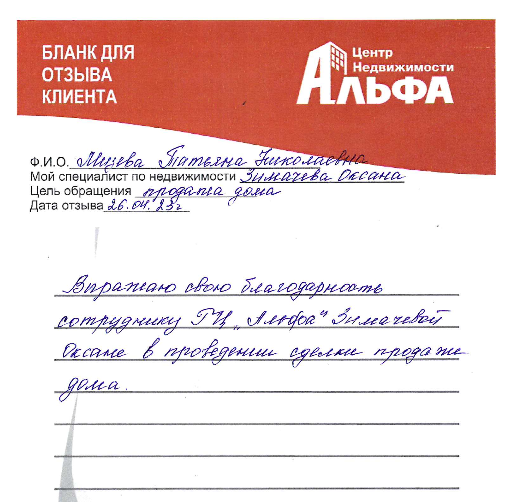 БЛАНК ДЛЯ
ОТЗЫВА
КЛИЕНТА
Центр
Недвижимости
АЛЬФА
Ф.И.О. Мизева Татьяна Николаевна
Мой специалист по недвижимости Зимачева Оксана
Цель обращения продажа дома
Дата отзыва 26.04.23г
Вправаю свою благодарность
сотруднику ГЦ „Альфа" Зимачевой
Оксане в проведении сделки продажи
дома.